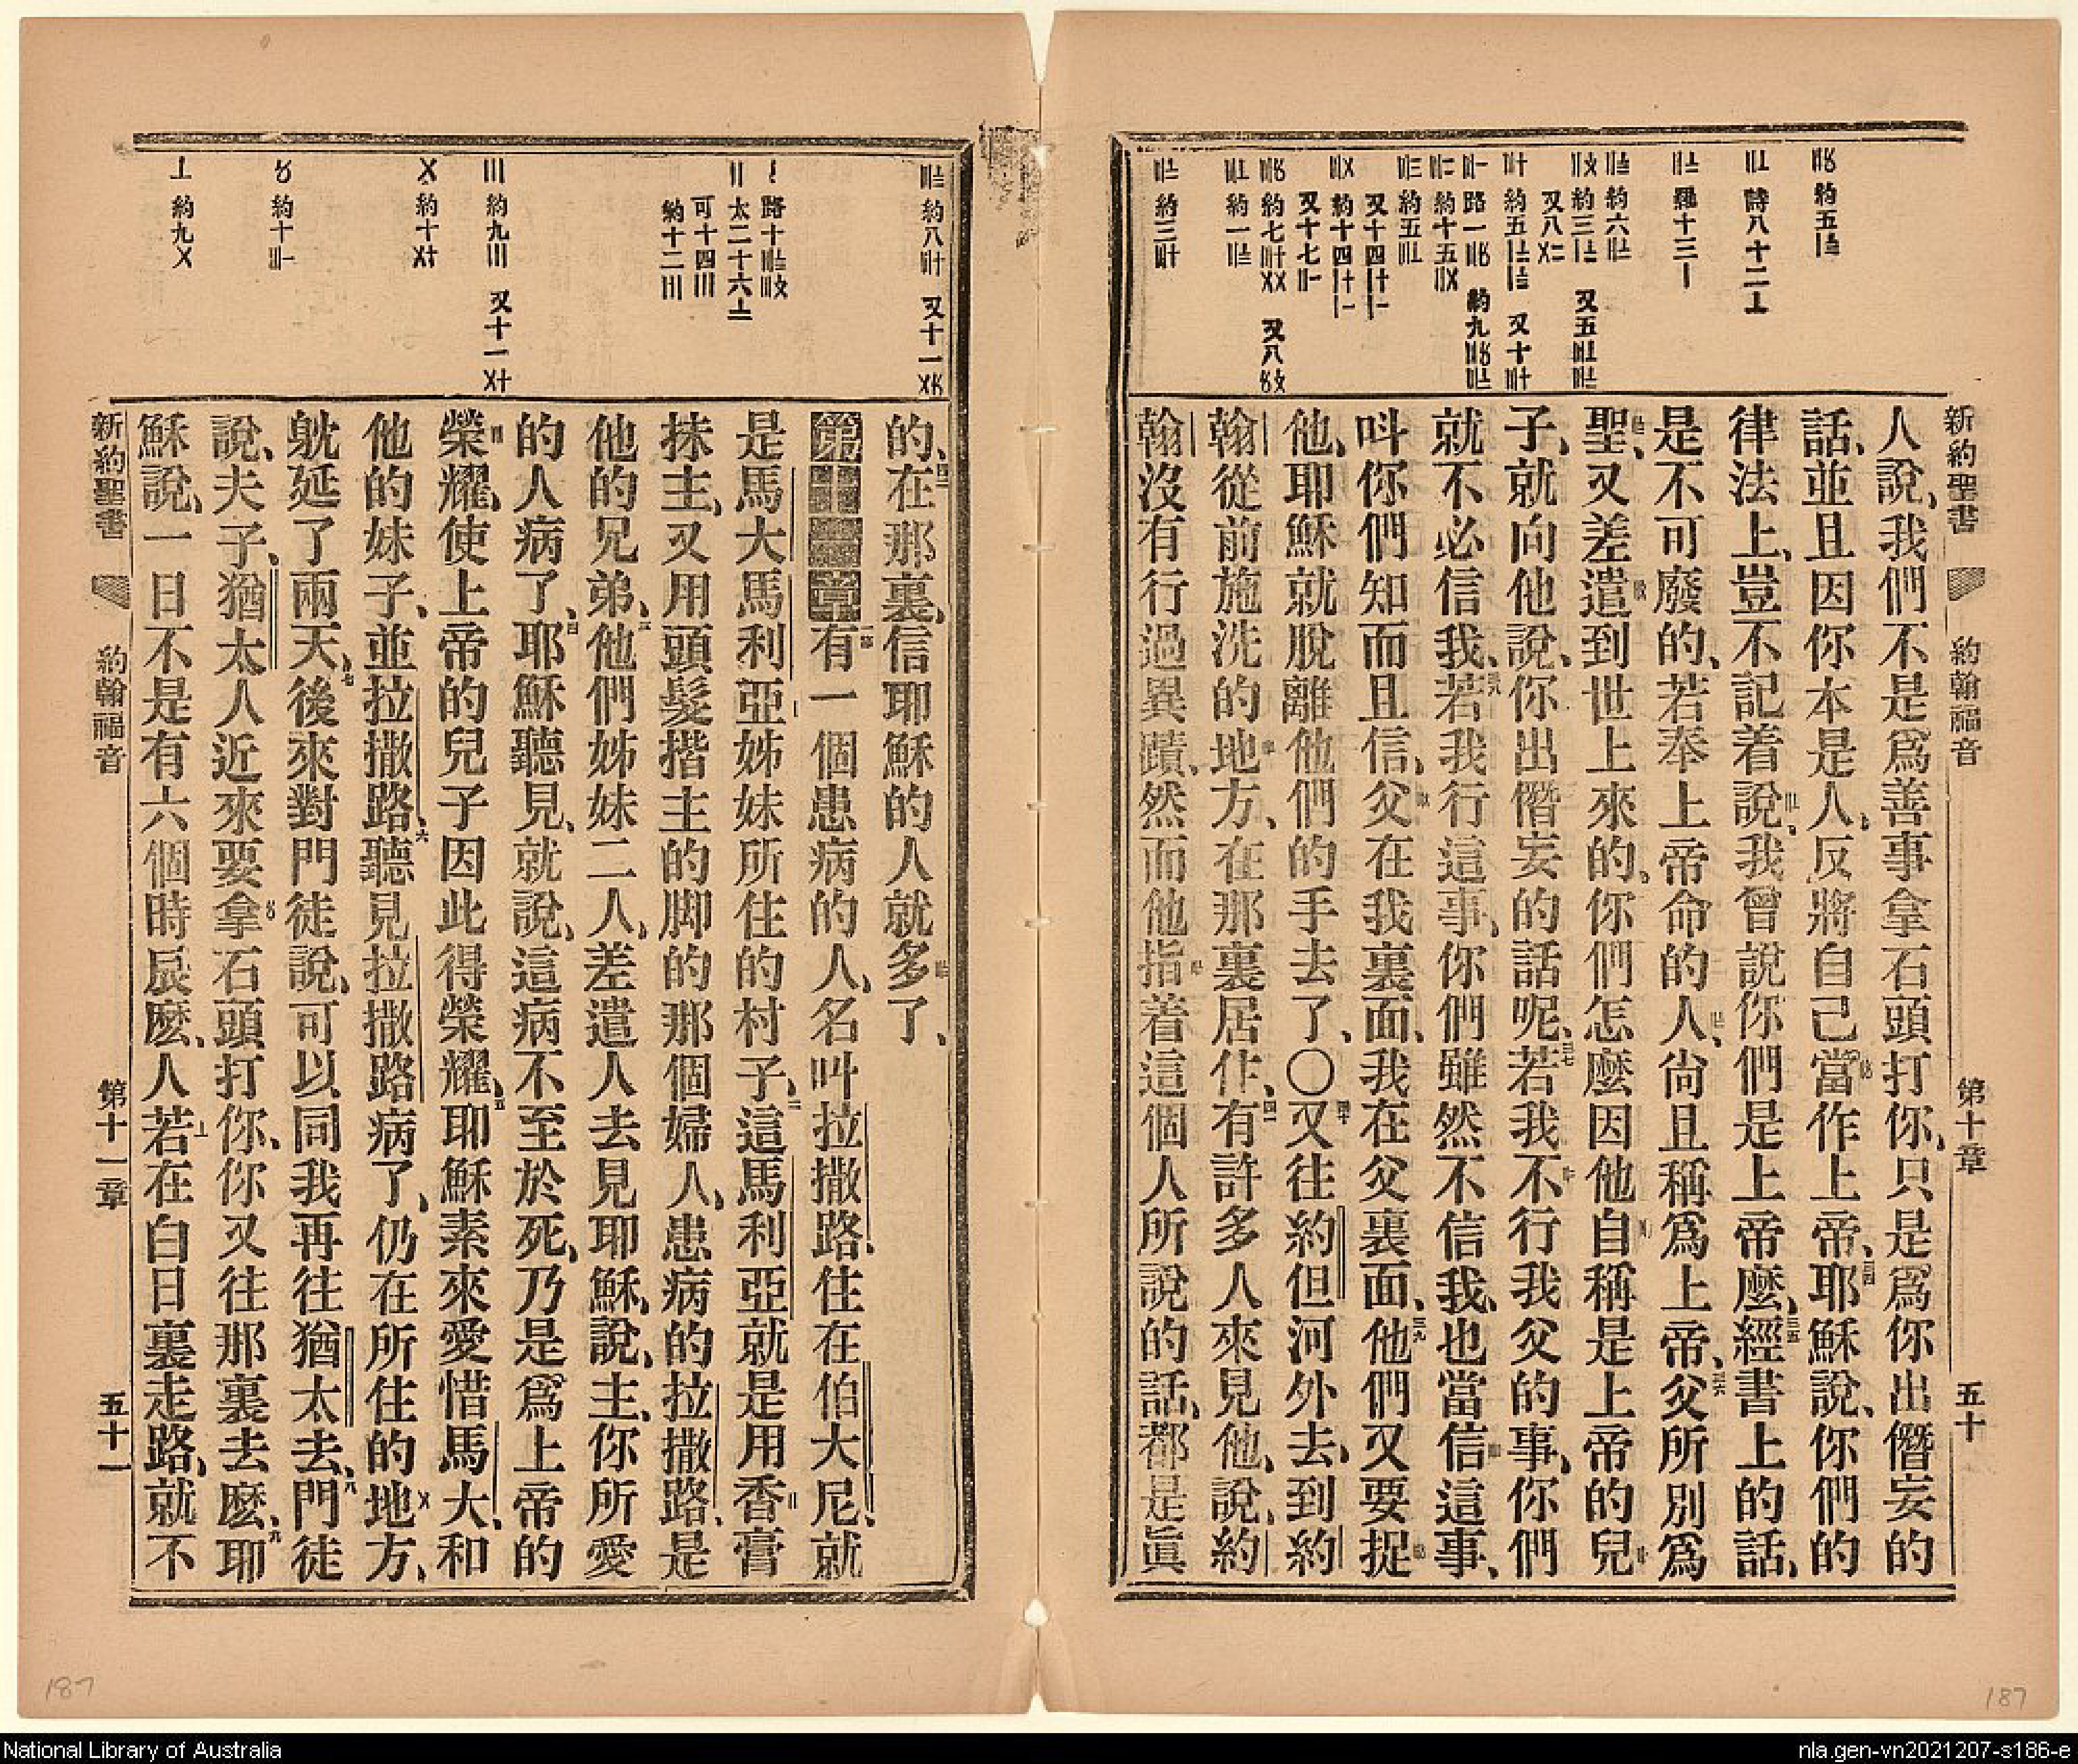 新約聖書 約翰福音 第十章 五十
人說、我們不是爲善事拿石頭打你、只是爲你出僭妄的
話、並且因你本是人、反將自己當作上帝、耶穌說、你們的
律法上、豈不記着說、我曾說你們是上帝麼、經書上的話、
是不可廢的、若奉上帝命的人、尙且稱爲上帝、父所別爲
聖、又差遣到世上來的、你們怎麼因他自稱是上帝的兒
子、就向他說、你出僭妄的話呢、若我不行我父的事、你們
就不必信我、若我行這事、你們雖然不信我、也當信這事、
呌你們知而且信、父在我裏面、我在父裏面、他們又要捉
他、耶穌就脫離他們的手去了、〇又往約但河外去、到約
翰從前施洗的地方、在那裏居住、有許多人來見他、說、約
翰沒有行過異蹟、然而他指着這個人所說的話、都是眞
的、在那裏、信耶穌的人就多了、
第十一章有一個患病的人、名叫拉撒路、住在伯大尼、就
是馬大馬利亞姊妹所住的村子、這馬利亞就是用香膏
抹主、又用頭髮揩主的脚的那個婦人、患病的拉撒路、是
他的兄弟、他們姊妹二人、差遣人去見耶穌、說、主、你所愛
的人病了、耶穌聽見、就說、這病不至於死、乃是爲上帝的
榮耀、使上帝的兒子因此得榮耀、耶穌素來愛惜馬大、和
他的妹子、並拉撒路、聽見拉撒路病了、仍在所住的地方、
躭延了兩天、後來對門徒說、可以同我再往猶太去、門徒
說、夫子、猶太人近來要拿石頭打你、你又往那裏去麽、耶
穌說、一日不是有六個時辰麽、人若在白日裏走路、就不
新約聖書 約翰福音 第十一章 五十一
187
187
National Library of Australia
nla.gen-vn2021207-s186-e